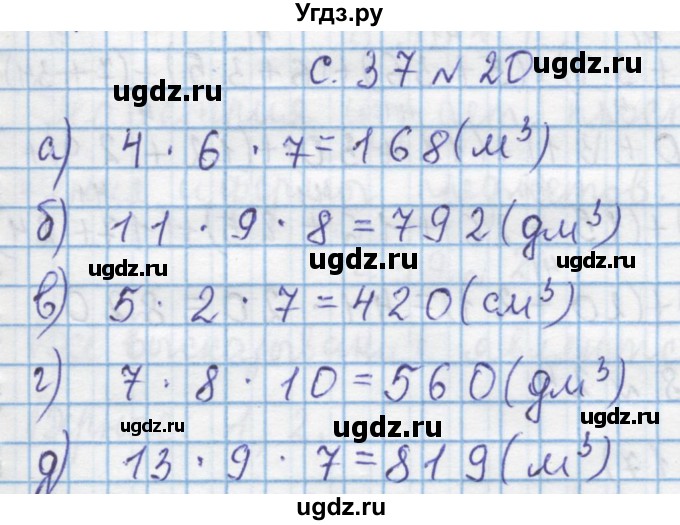 Угдз.ру
с. 37 № 20
ugdz.ru
ugdz.ru
а) 4 · 6 · 7 = 168 (м³)
б) 11 · 9 · 8 = 792 (дм³)
ugdz.ru
ugdz.ru
ugdz.ru
в) 5 · 2 · 7 = 420 (см³)
г) 7 · 8 · 10 = 560 (дм³)
ugdz.ru
ugdz.ru
ugdz.ru
д) 13 · 9 · 7 = 819 (м³)
ugdz.ru